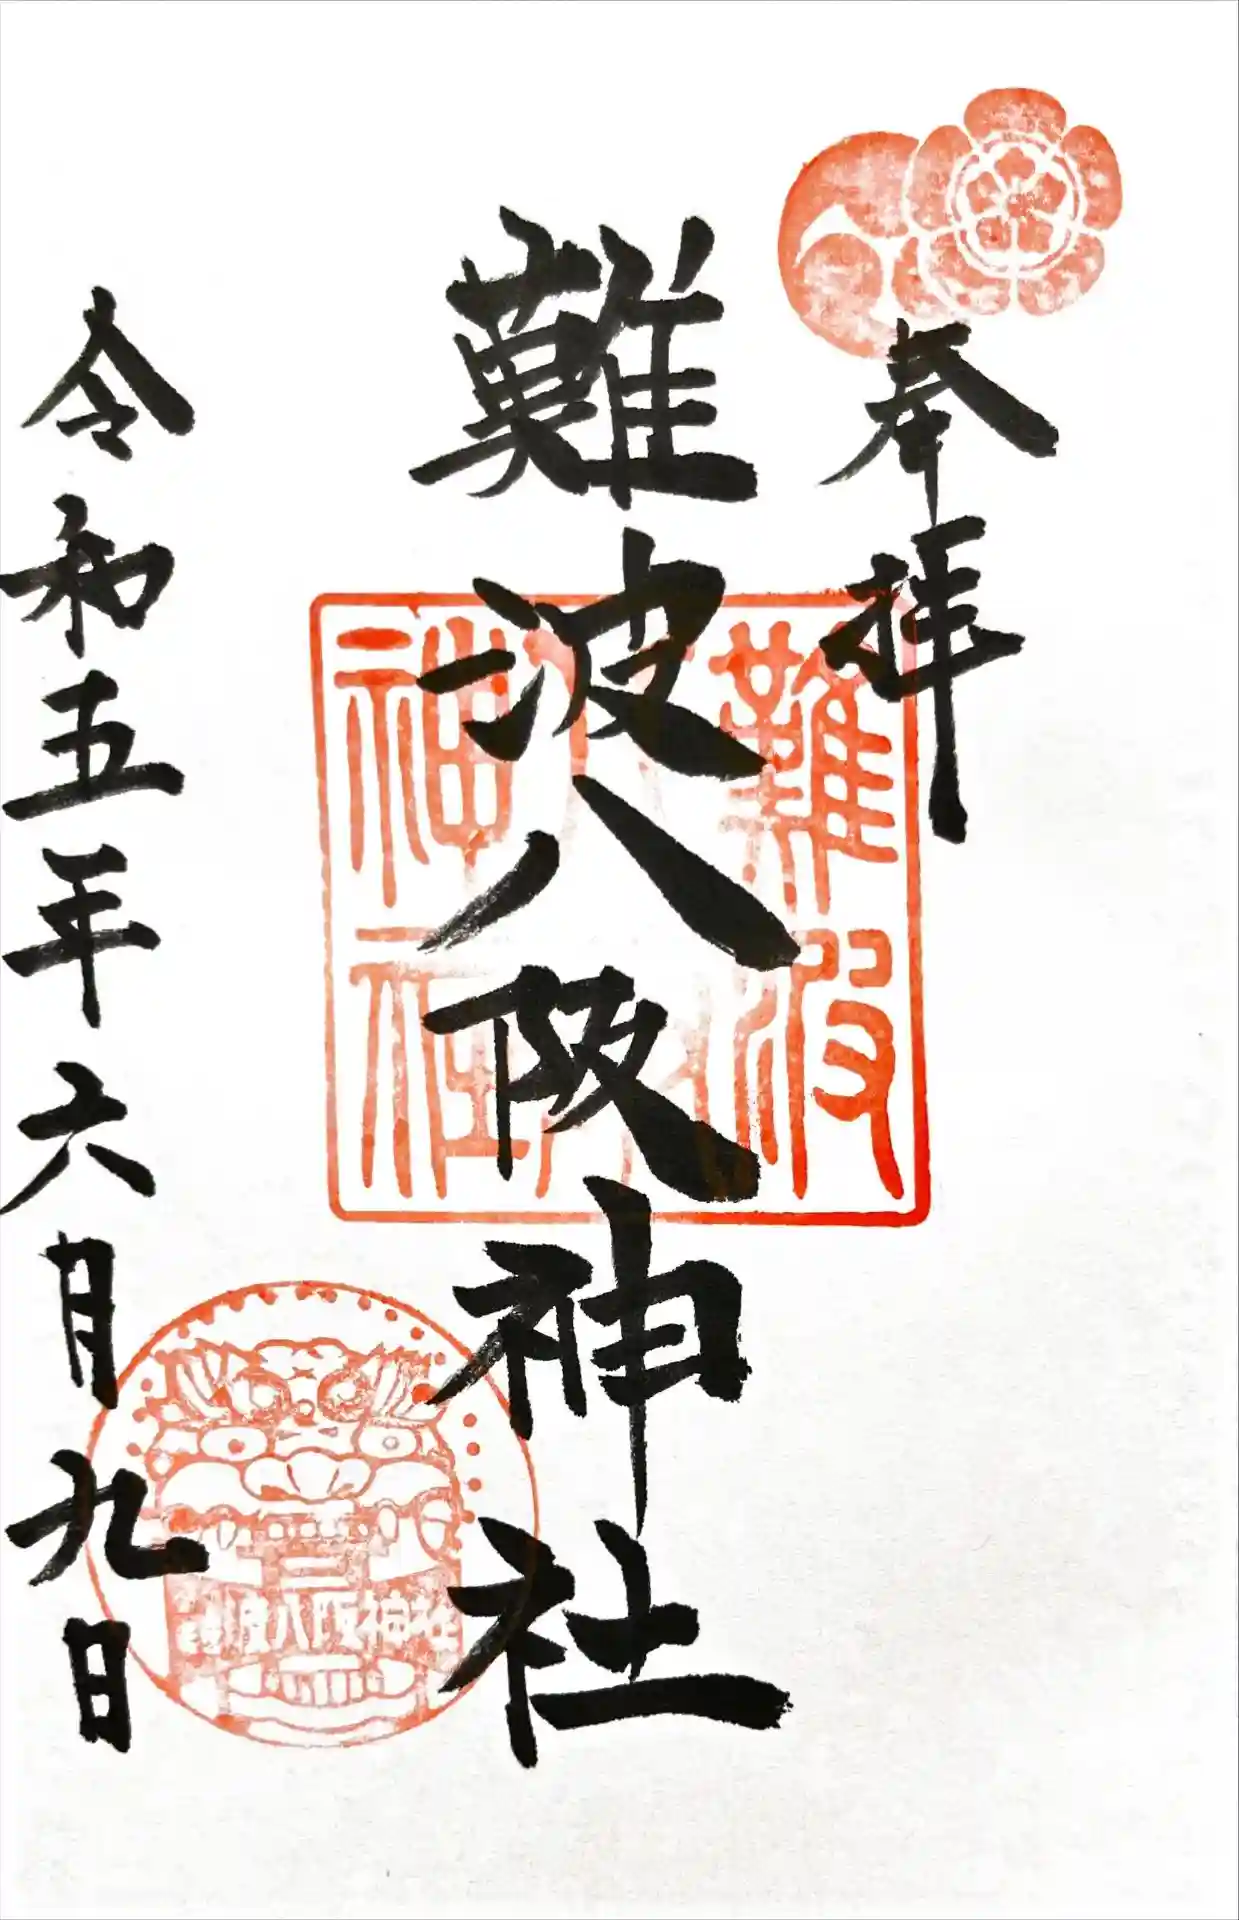 奉拝
難波八阪神社
難波
八阪
神社
難波八阪神社
令和五年六月九日